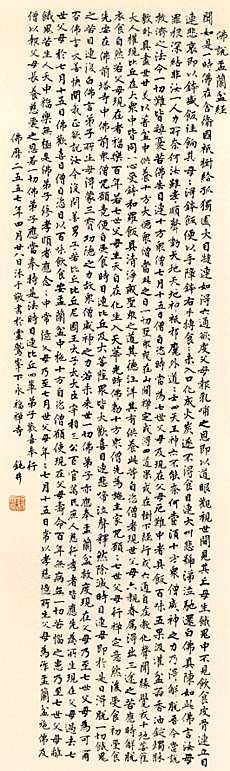 佛說盂蘭盆經
聞如是一時佛在舍衛國祇樹給孤獨園大目犍連始得六通欲度父母報乳哺之恩即以道眼觀視世間見其亡母生餓鬼中不見飲食皮骨連立目
連悲哀即以鉢盛飯往餉其母母得鉢飯便以左手障鉢右手摶食食未入口化成火炭遂不得食目連大叫悲號涕泣馳還白佛具陳如此佛言汝母
罪根深結非汝一人力所奈何汝雖孝順聲動天地天神地祇邪魔外道道士四天王神亦不能奈何當須十方眾僧威神之力乃得解脫吾今當說
救濟之法令一切難皆離憂苦佛告目連十方眾僧七月十五日僧自恣時當為七世父母及現在父母厄難中者具飯百味五果汲灌盆器香油錠燭床
敷臥具盡世甘美以著盆中供養十方大德眾僧當此之日一切聖眾或在山間禪定或得四道果或在樹下經行或六通自在教化聲聞緣覺或十地菩薩
大人權現比丘在大眾中皆同一心受鉢和羅飯具清淨戒聖眾之道其德汪洋其有供養此等自恣僧者現世父母六親眷屬得出三途之苦應時解脫
衣食自然若父母現在者福樂百年若七世父母生天自在化生入天華光時佛敕十方眾僧皆先為施主家咒願七世父母行禪定意然後受食初受食時
先安在佛前塔寺中佛前眾僧咒願竟便自受食時目連比丘及大菩薩眾皆大歡喜目連悲啼泣聲釋然除滅時目連母即於是日得脫一劫餓鬼
之苦目連復白佛言弟子所生母得蒙三寶功德之力眾僧威神之力故若未來世一切佛弟子亦應奉盂蘭盆救度現在父母乃至七世父母可為爾
否佛言大善快問我正欲說汝今復問善男子若比丘比丘尼國王太子大臣宰相三公百官萬民庶人行慈孝者皆應先為所生現在父母過去七
世父母於七月十五日佛歡喜日僧自恣日以百味飯食安盂蘭盆中施十方自恣僧願使現在父母壽命百年無病無一切苦惱之患乃至七世父母離
餓鬼苦生人天中福樂無極是佛弟子修孝順者應念念中常憶父母乃至七世父母年年七月十五日常以孝慈憶所生父母為作盂蘭盆施佛及
僧以報父母長養慈愛之恩若一切佛弟子應當奉持是法時目連比丘四輩弟子歡喜奉行
佛曆二五五七年四月廿八日沐手敬書於靈鷲峯下永福禪寺